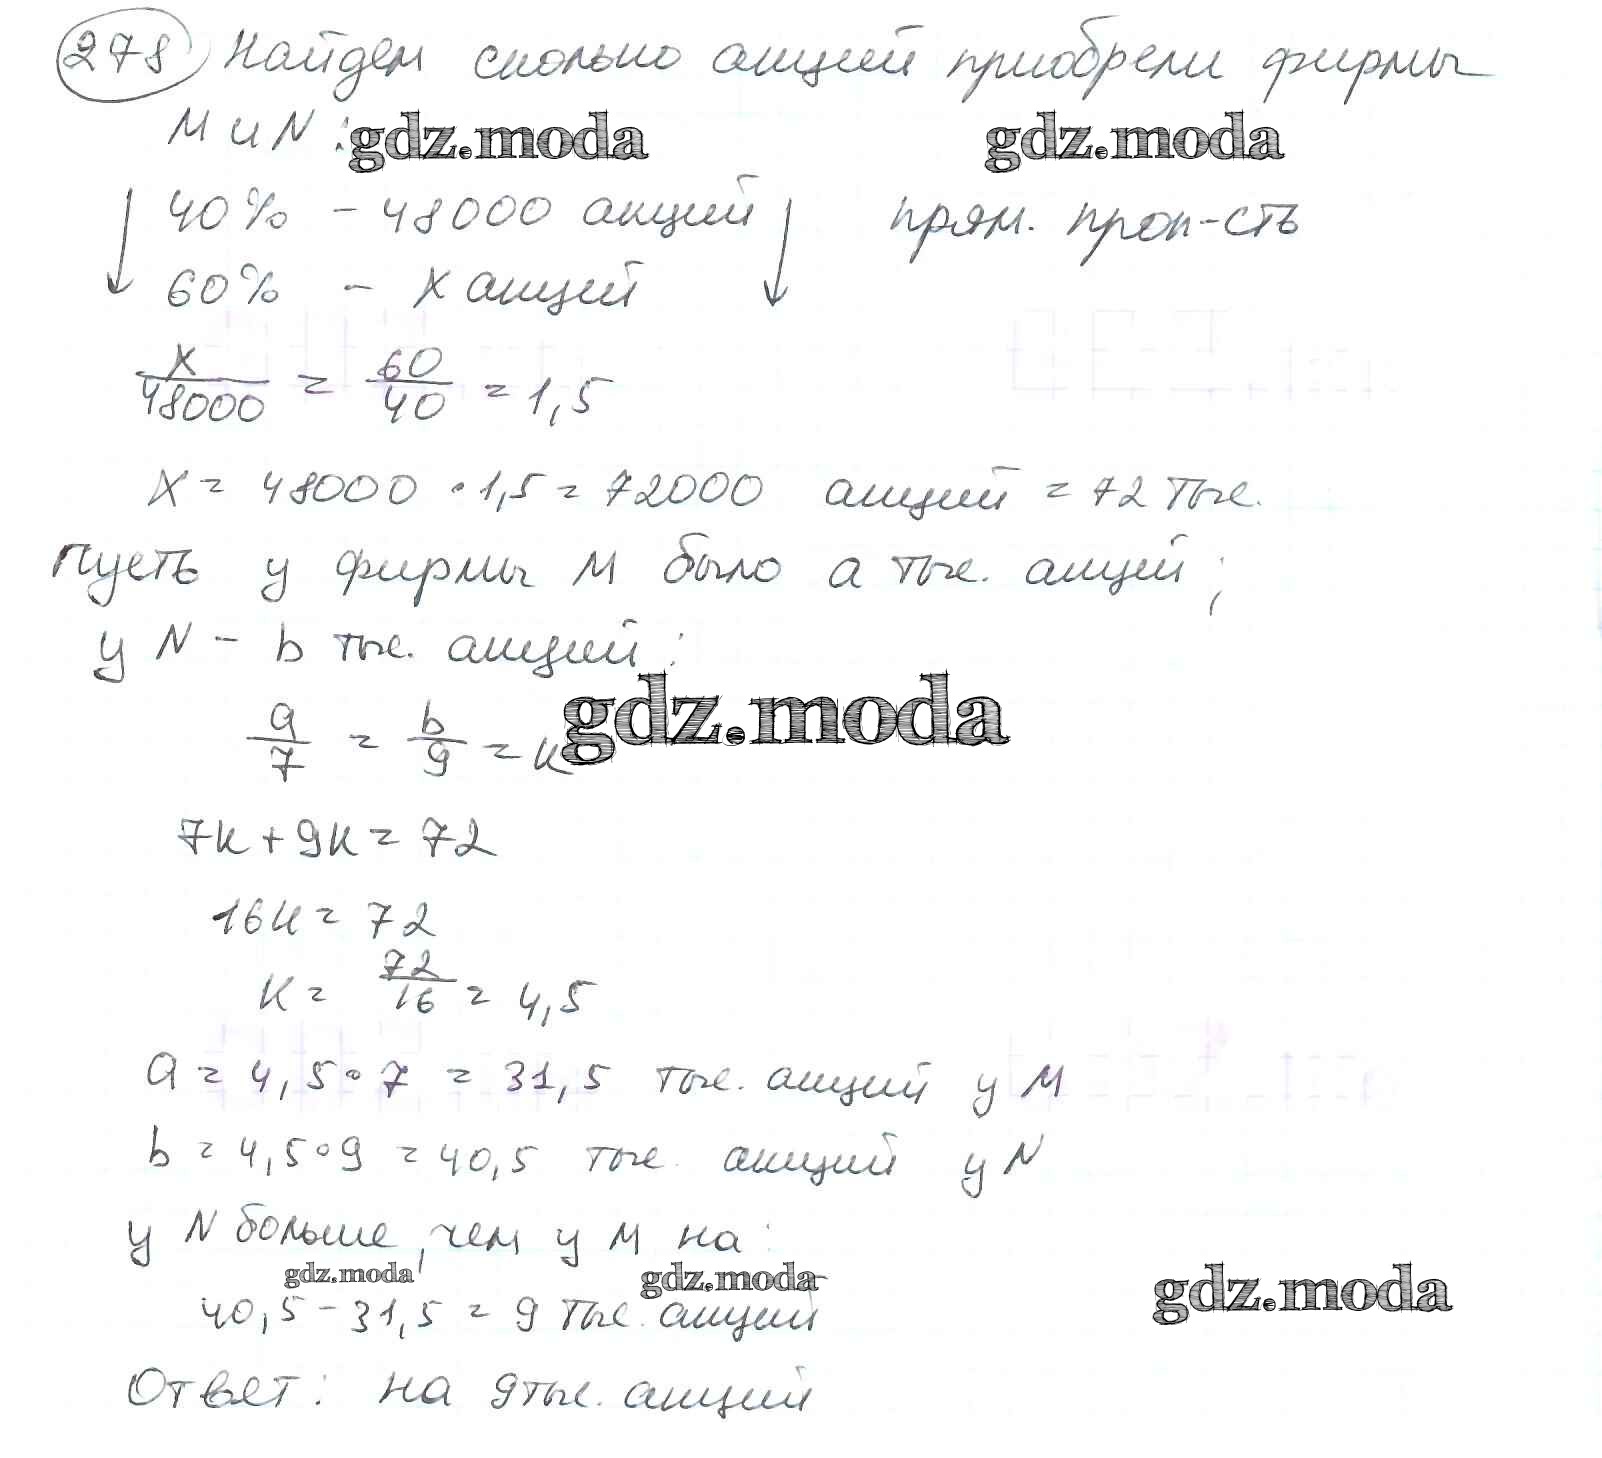 278 Найдем сколько акций приобрели фирмы
М и N: gdz.moda gdz.moda
40% - 48000 акций прям. проп-сть
60% - x акций
x/48000 = 60/40 = 1,5
x = 48000 · 1,5 = 72000 акций = 72 тыс.
Пусть у фирмы М было a тыс. акций;
у N - b тыс. акций:
a/7 = b/9 = к gdz.moda
7к + 9к = 72
16к = 72
к = 72/16 = 4,5
a = 4,5 · 7 = 31,5 тыс. акций у М
b = 4,5 · 9 = 40,5 тыс. акций у N
у N больше, чем у М на:
gdz.moda gdz.moda gdz.moda
40,5 - 31,5 = 9 тыс. акций
Ответ: на 9 тыс. акций